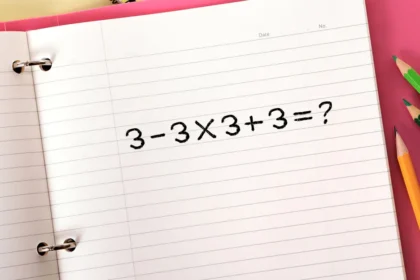 Date
No.
3-3×3+3=?